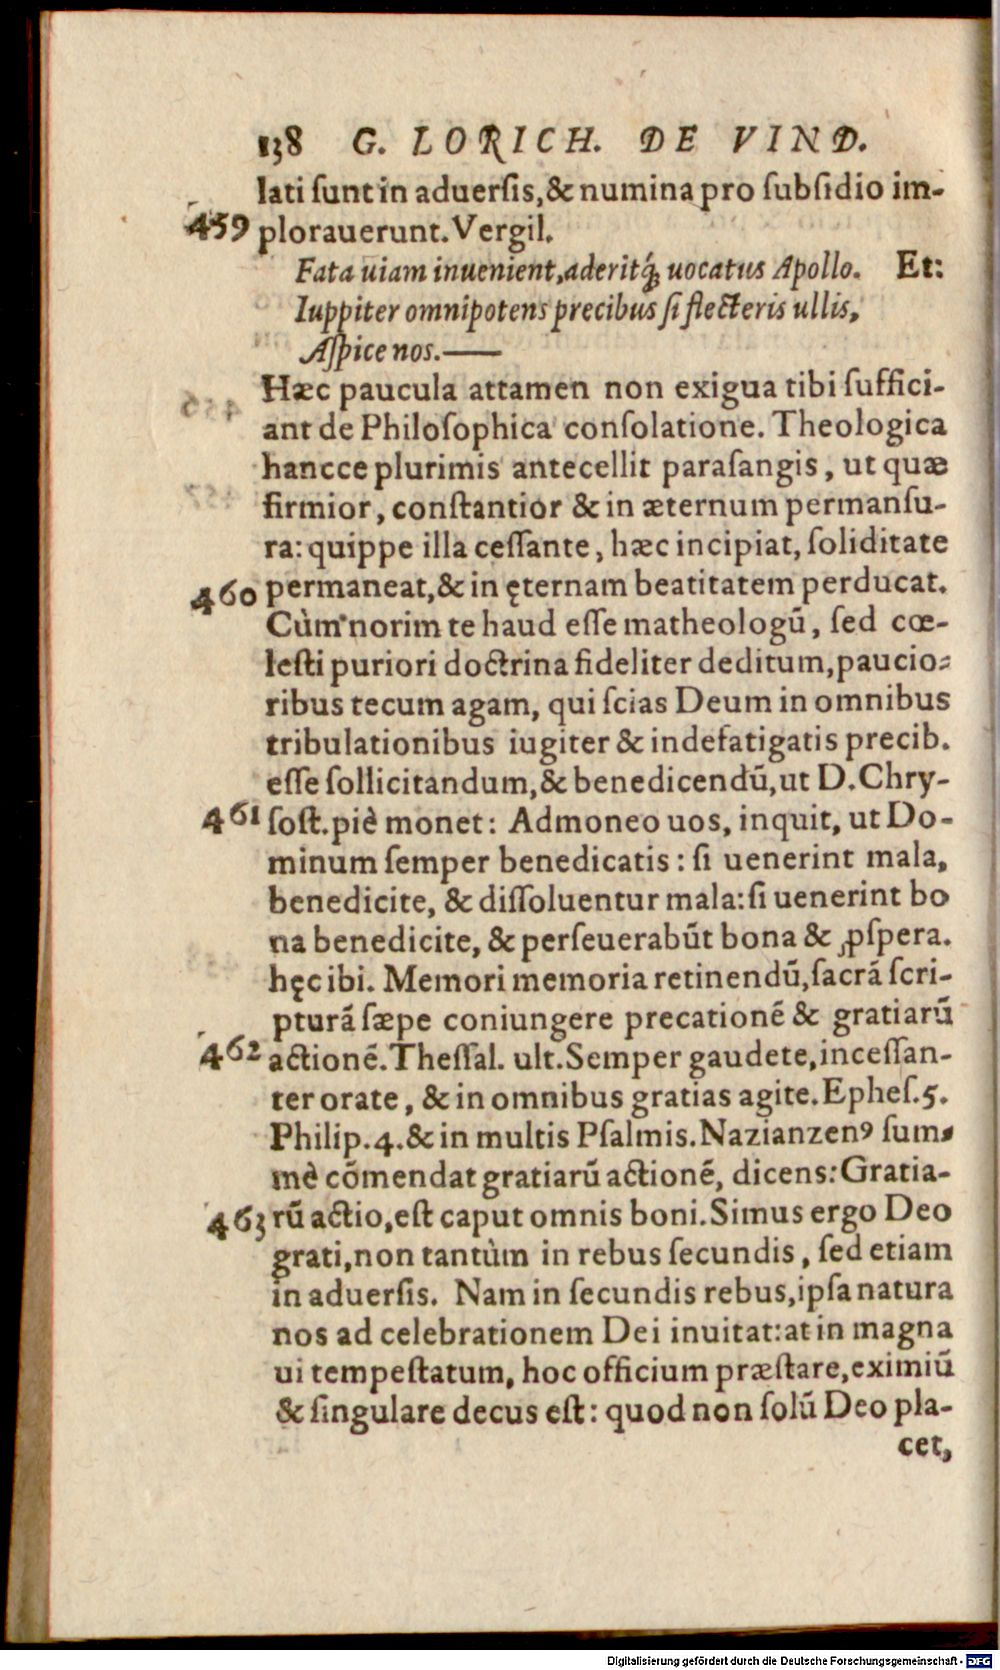 138 G. LORICH. DE VIND.
lati ſunt in aduerſis, & numina pro ſubſidio im-
459 plorauerunt. Vergil.
Fata uiam inuenient, aderitq́; uocatus Apollo. Et:
Iuppiter omnipotens precibus ſi flecteris ullis,
Aſpice nos.——
Hæc paucula attamen non exigua tibi ſuffici-
ant de Philoſophica conſolatione. Theologica
hancce plurimis antecellit paraſangis, ut quæ
firmior, conſtantior & in æternum permanſu-
ra: quippe illa ceſſante, hæc incipiat, ſoliditate
460 permaneat, & in ęternam beatitatem perducat.
Cùm norim te haud eſſe matheologũ, ſed cœ-
leſti puriori doctrina fideliter deditum, paucio-
ribus tecum agam, qui ſcias Deum in omnibus
tribulationibus iugiter & indefatigatis precib.
eſſe ſollicitandum, & benedicendũ, ut D. Chry-
461 ſoſt. piè monet: Admoneo uos, inquit, ut Do-
minum ſemper benedicatis: ſi uenerint mala,
benedicite, & diſſoluentur mala: ſi uenerint bo
na benedicite, & perſeuerabũt bona & ꝓſpera.
hęc ibi. Memori memoria retinendũ, ſacrã ſcri-
pturã ſæpe coniungere precationẽ & gratiarũ
462 actionẽ. Theſſal. ult. Semper gaudete, inceſſan-
ter orate, & in omnibus gratias agite. Epheſ. 5.
Philip. 4. & in multis Pſalmis. Nazianzenꝰ ſum-
mè cõmendat gratiarũ actionẽ, dicens: Gratia-
463 rũ actio, eſt caput omnis boni. Simus ergo Deo
grati, non tantùm in rebus ſecundis, ſed etiam
in aduerſis. Nam in ſecundis rebus, ipſa natura
nos ad celebrationem Dei inuitat: at in magna
ui tempeſtatum, hoc officium præſtare, eximiũ
& ſingulare decus eſt: quod non ſolũ Deo pla-
cet,
Digitalisierung gefördert durch die Deutsche Forschungsgemeinschaft - DFG